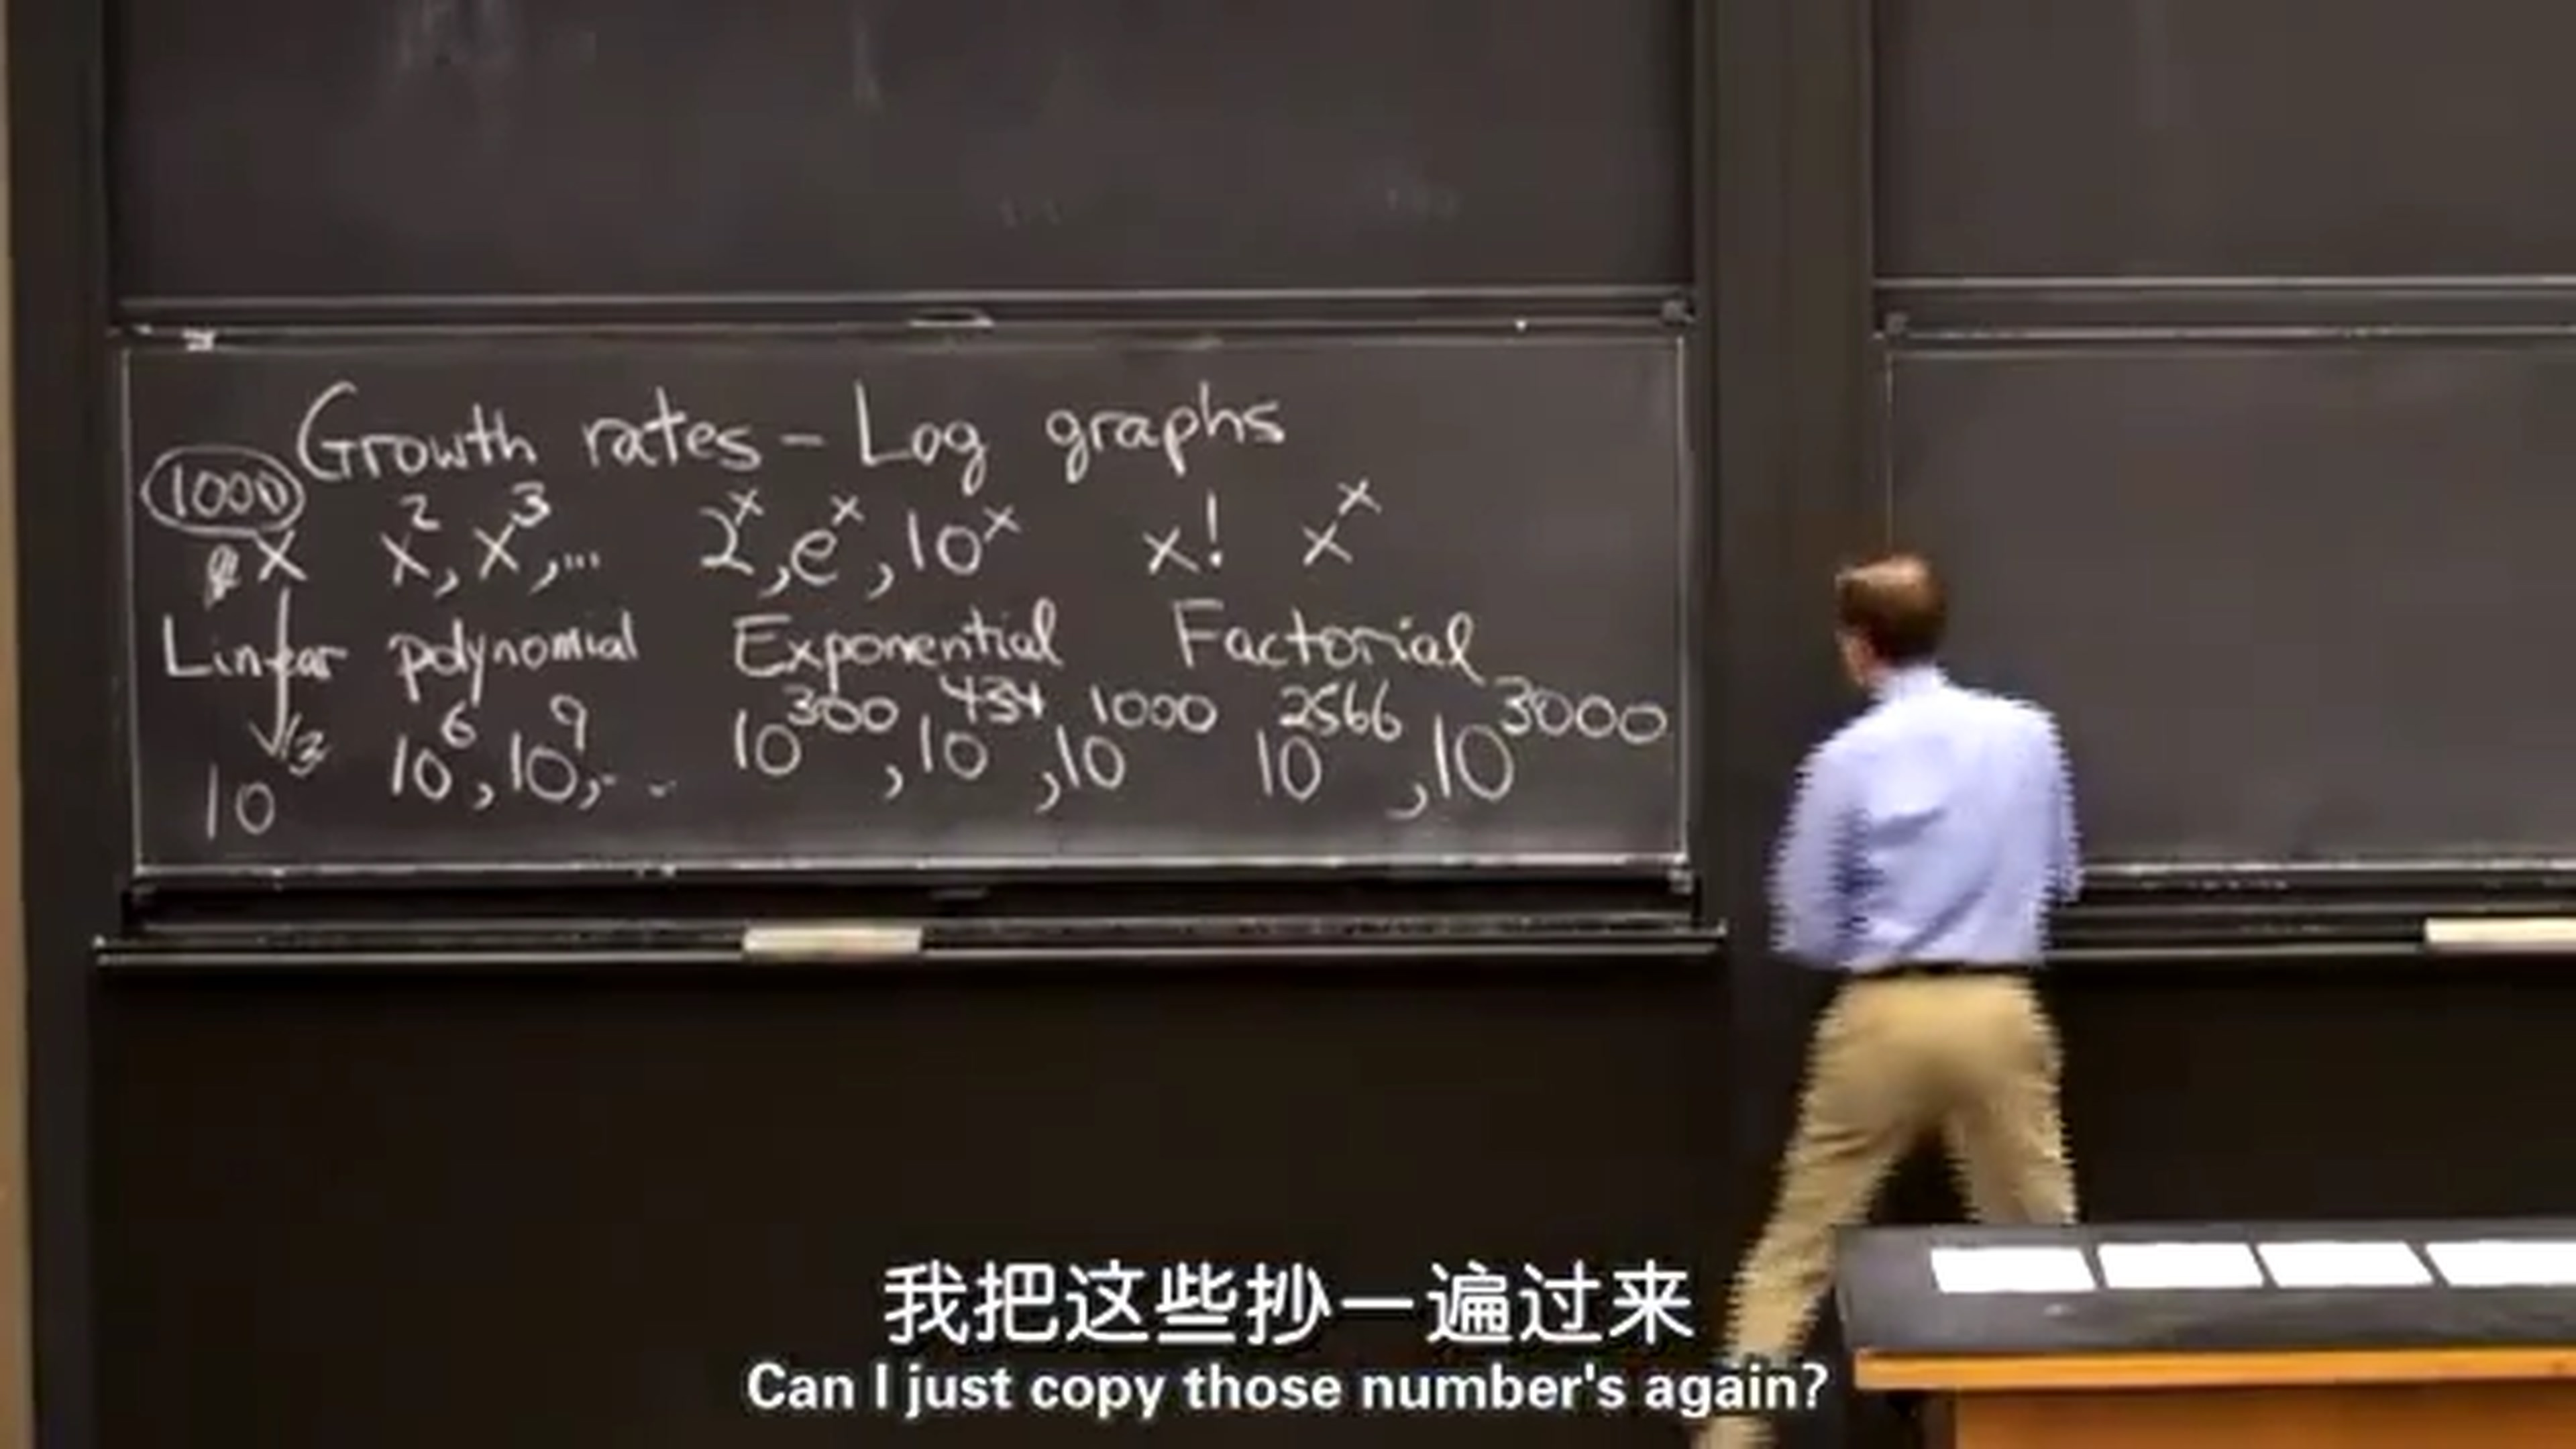 Growth rates – Log graphs
1000
x x², x³, ... 2ˣ, eˣ, 10ˣ x! xˣ
Linear polynomial Exponential Factorial
10³ 10⁶, 10⁹, ... 10³⁰⁰, 10⁴³⁴, 10¹⁰⁰⁰ 10²⁵⁶⁶, 10³⁰⁰⁰
我把这些抄一遍过来
Can I just copy those number's again?